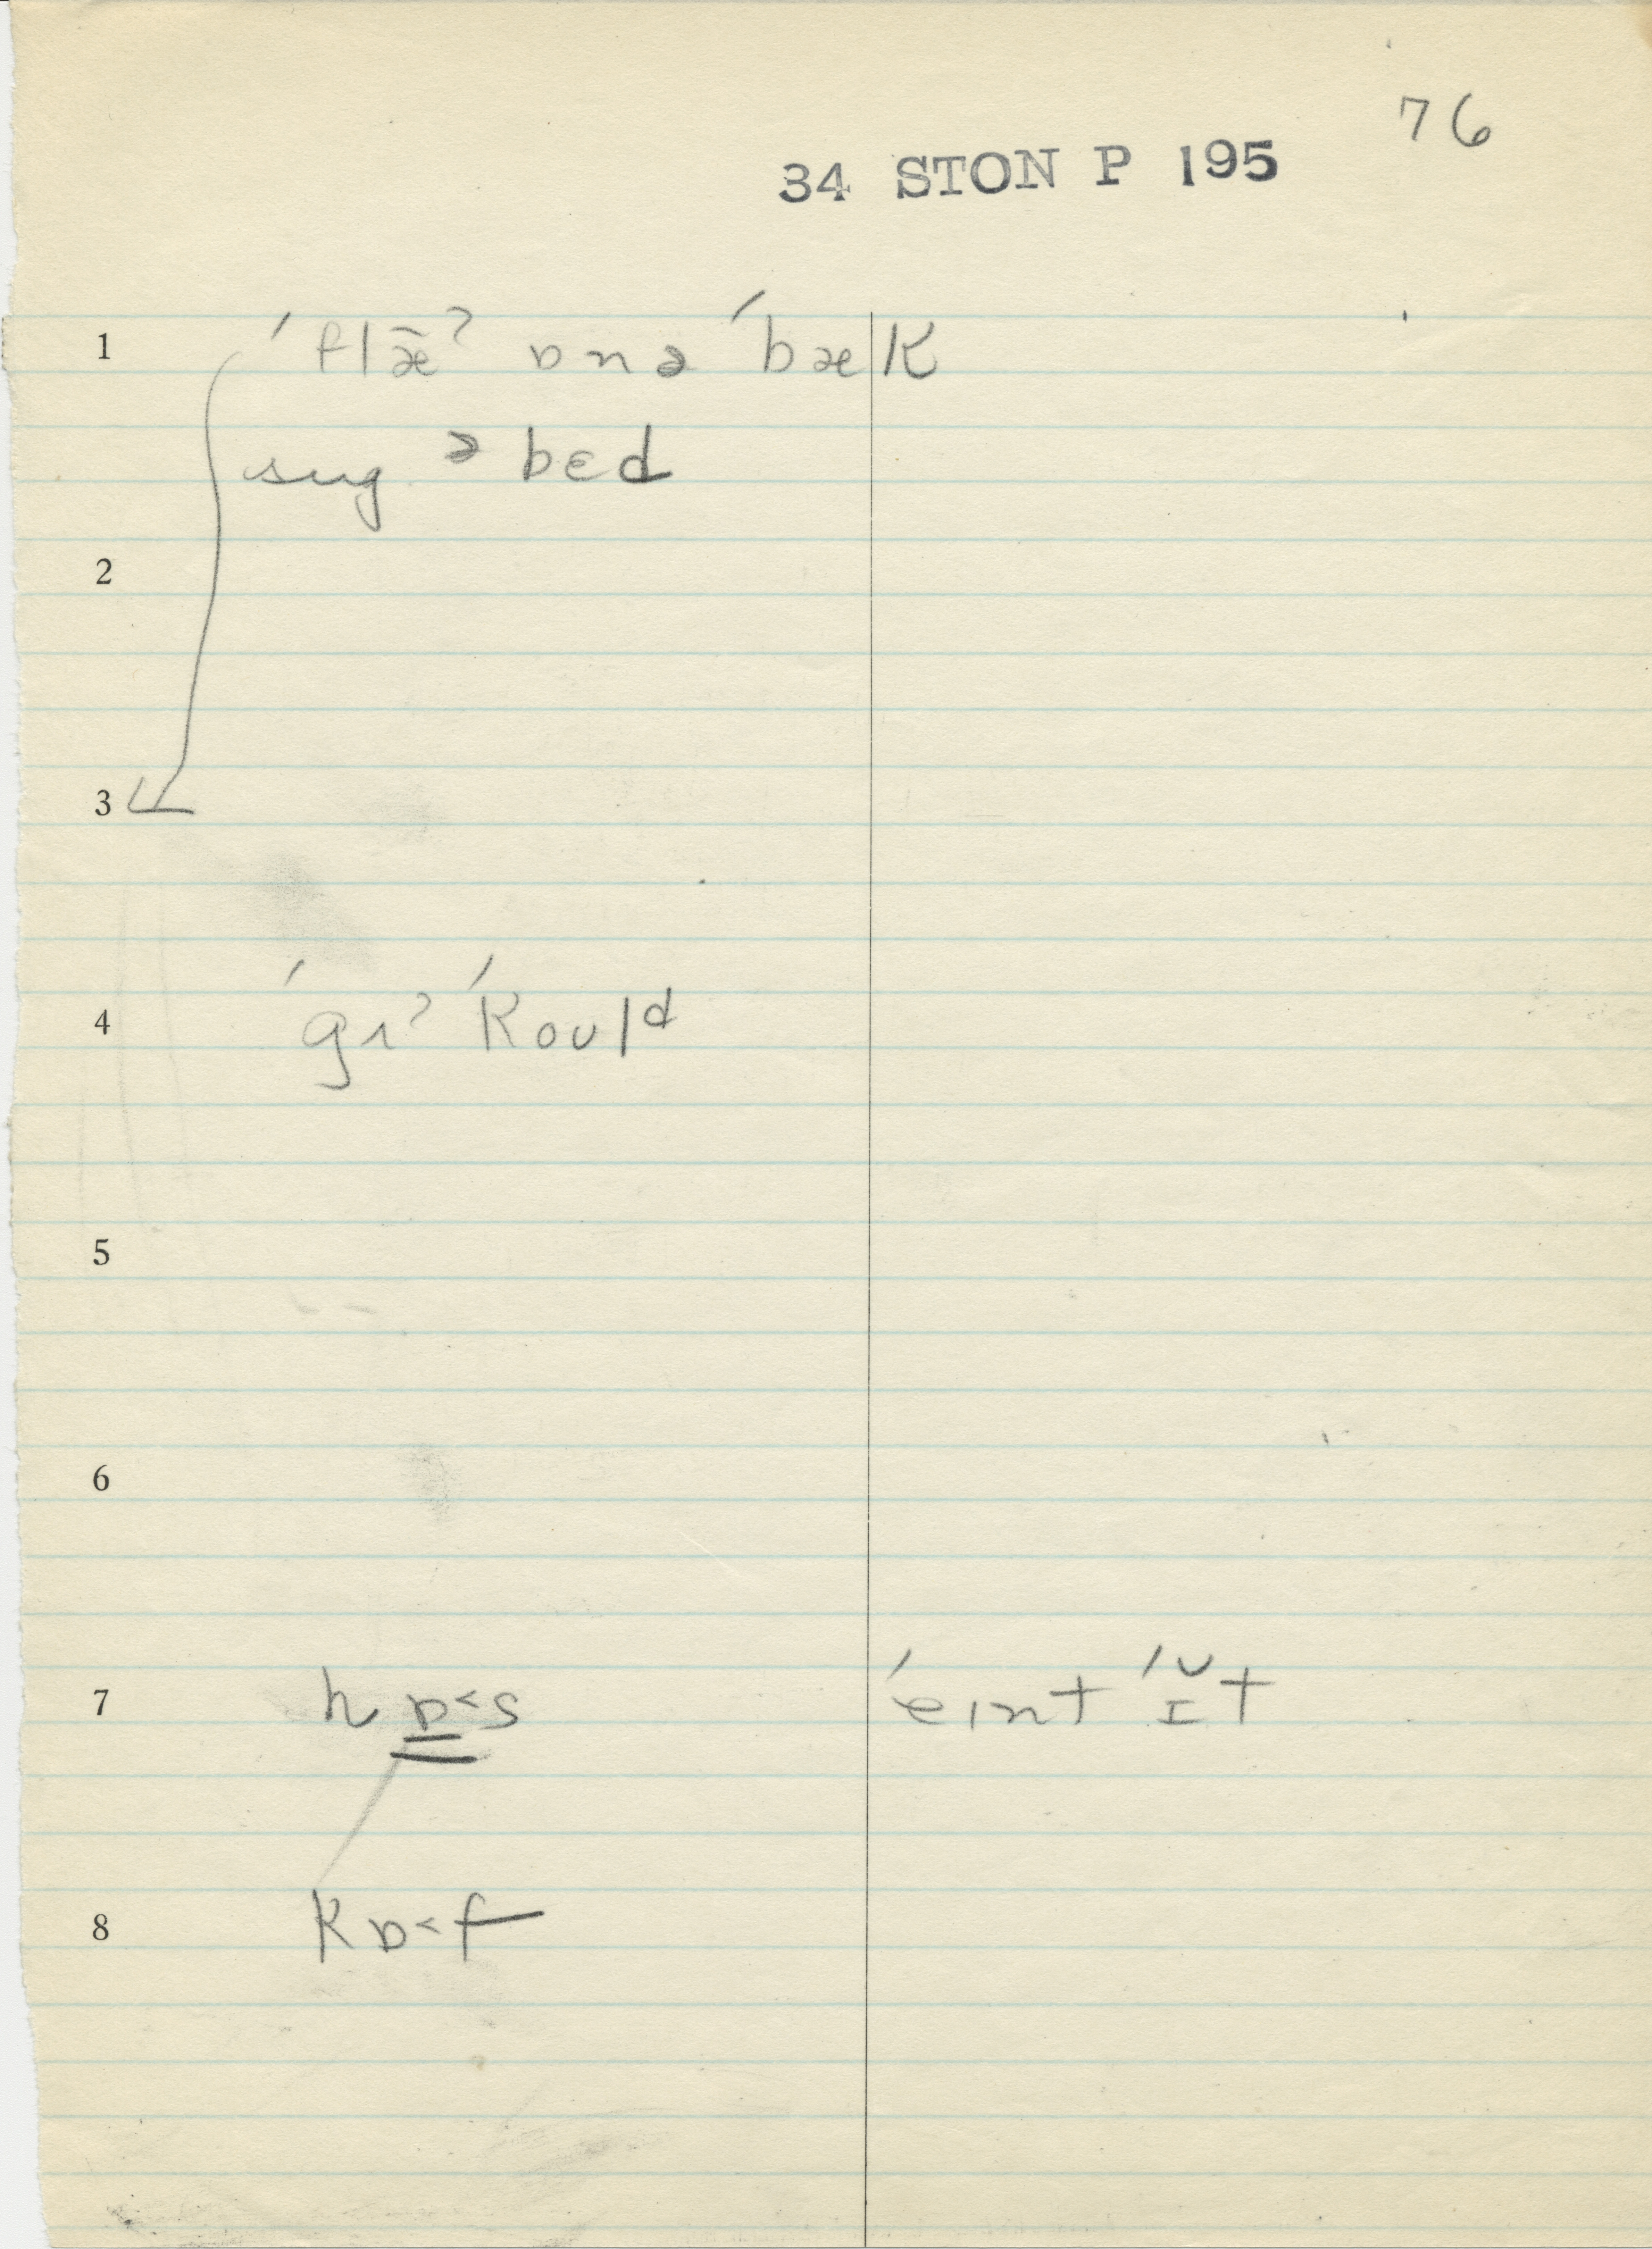 76
34 STON P 195
1 ˈflǣˀ ɒnə ˈbæk
sug ə bɛd
2
3
4 ˈgɪˀ ˈkoʊlᵈ
5
6
7 hɒ˂s ˈeɪnt ˈɪ̆t
8 kɒ˂f